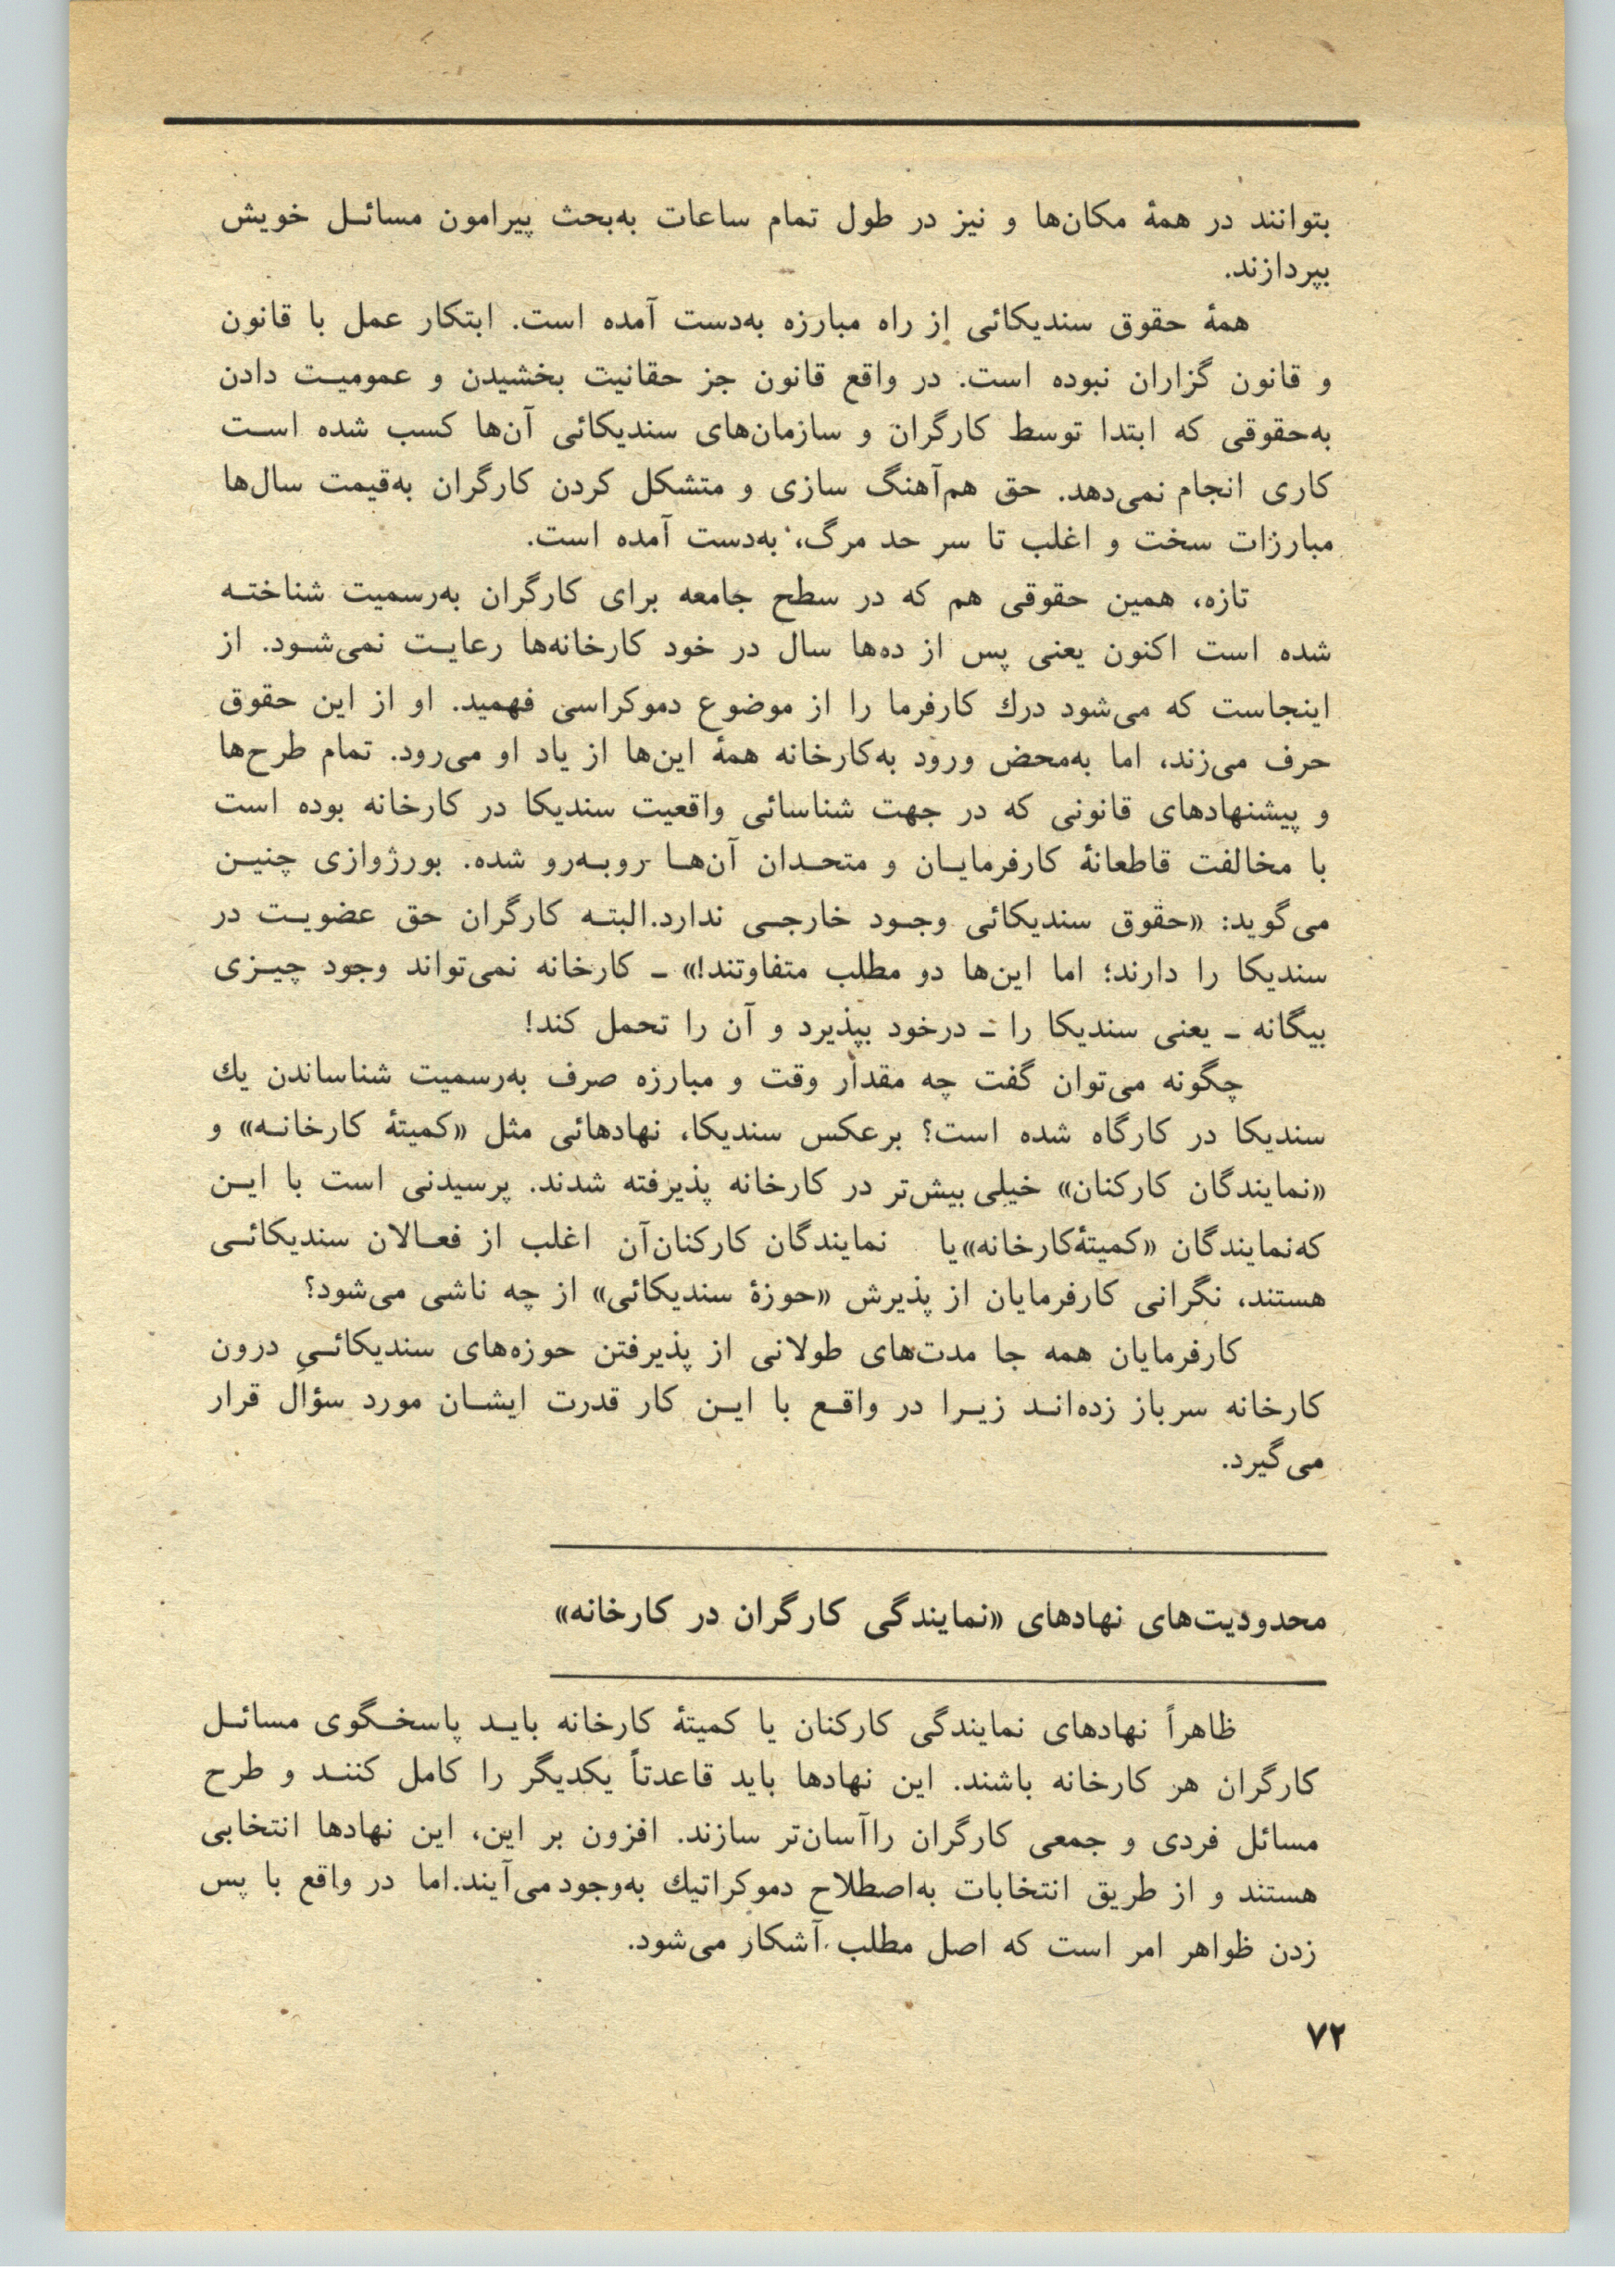 بتوانند در همهٔ مکان‌ها و نیز در طول تمام ساعات به‌بحث پیرامون مسائل خویش
بپردازند.
همهٔ حقوق سندیکائی از راه مبارزه به‌دست آمده است. ابتکار عمل با قانون
و قانون گزاران نبوده است. در واقع قانون جز حقانیت بخشیدن و عمومیت دادن
به‌حقوقی که ابتدا توسط کارگران و سازمان‌های سندیکائی آن‌ها کسب شده است
کاری انجام نمی‌دهد. حق هم‌آهنگ سازی و متشکل کردن کارگران به‌قیمت سال‌ها
مبارزات سخت و اغلب تا سر حد مرگ، به‌دست آمده است.
تازه، همین حقوقی هم که در سطح جامعه برای کارگران به‌رسمیت شناخته
شده است اکنون یعنی پس از ده‌ها سال در خود کارخانه‌ها رعایت نمی‌شود. از
اینجاست که می‌شود درك کارفرما را از موضوع دموکراسی فهمید. او از این حقوق
حرف می‌زند، اما به‌محض ورود به‌کارخانه همهٔ این‌ها از یاد او می‌رود. تمام طرح‌ها
و پیشنهادهای قانونی که در جهت شناسائی واقعیت سندیکا در کارخانه بوده است
با مخالفت قاطعانهٔ کارفرمایان و متحدان آن‌ها روبه‌رو شده. بورژوازی چنین
می‌گوید: «حقوق سندیکائی وجود خارجی ندارد.البته کارگران حق عضویت در
سندیکا را دارند؛ اما این‌ها دو مطلب متفاوتند!» ـ کارخانه نمی‌تواند وجود چیزی
بیگانه ـ یعنی سندیکا را ـ درخود بپذیرد و آن را تحمل کند!
چگونه می‌توان گفت چه مقدار وقت و مبارزه صرف به‌رسمیت شناساندن یك
سندیکا در کارگاه شده است؟ برعکس سندیکا، نهادهائی مثل «کمیتهٔ کارخانه» و
«نمایندگان کارکنان» خیلی بیش‌تر در کارخانه پذیرفته شدند. پرسیدنی است با این
که‌نمایندگان «کمیتهٔ‌کارخانه»یا نمایندگان کارکنان‌آن اغلب از فعالان سندیکائی
هستند، نگرانی کارفرمایان از پذیرش «حوزهٔ سندیکائی» از چه ناشی می‌شود؟
کارفرمایان همه جا مدت‌های طولانی از پذیرفتن حوزه‌های سندیکائیِ درون
کارخانه سرباز زده‌اند زیرا در واقع با این کار قدرت ایشان مورد سؤال قرار
می‌گیرد.
محدودیت‌های نهادهای «نمایندگی کارگران در کارخانه»
ظاهراً نهادهای نمایندگی کارکنان یا کمیتهٔ کارخانه باید پاسخگوی مسائل
کارگران هر کارخانه باشند. این نهادها باید قاعدتاً یکدیگر را کامل کنند و طرح
مسائل فردی و جمعی کارگران راآسان‌تر سازند. افزون بر این، این نهادها انتخابی
هستند و از طریق انتخابات به‌اصطلاح دموکراتیك به‌وجود می‌آیند.اما در واقع با پس
زدن ظواهر امر است که اصل مطلب آشکار می‌شود.
۷۲